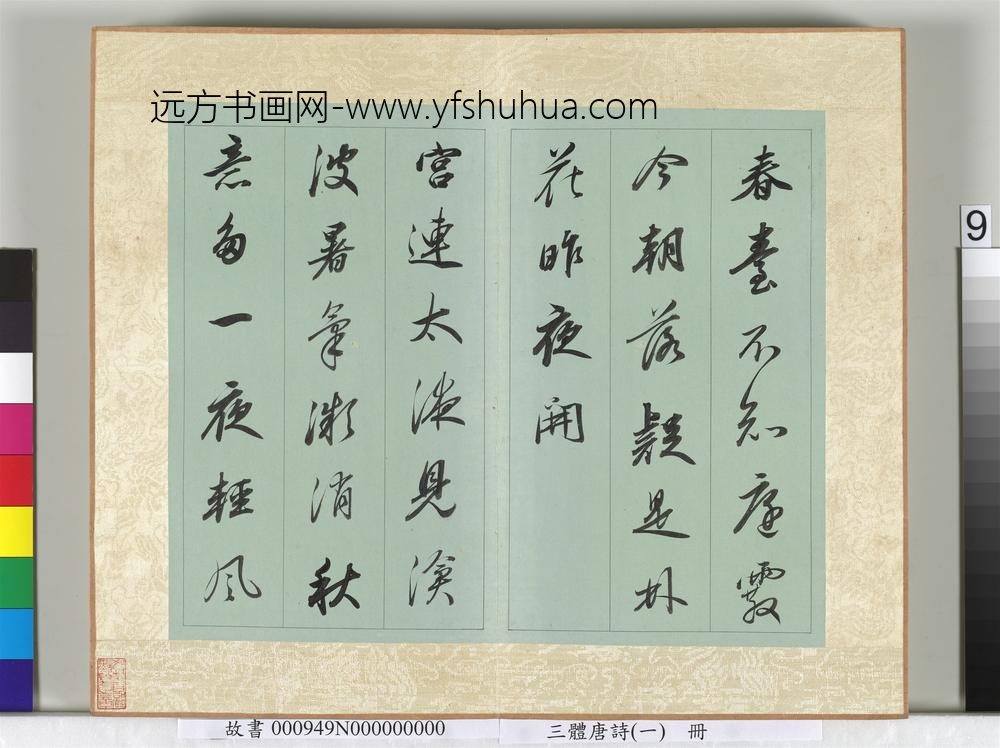 远方书画网-www.yfshuhua.com
春臺不知庭霰
今朝落疑是林
花昨夜開
宮連太液見滄
波暑氣微消秋
意多一夜輕風
9
故書 000949N000000000
三體唐詩(一) 冊